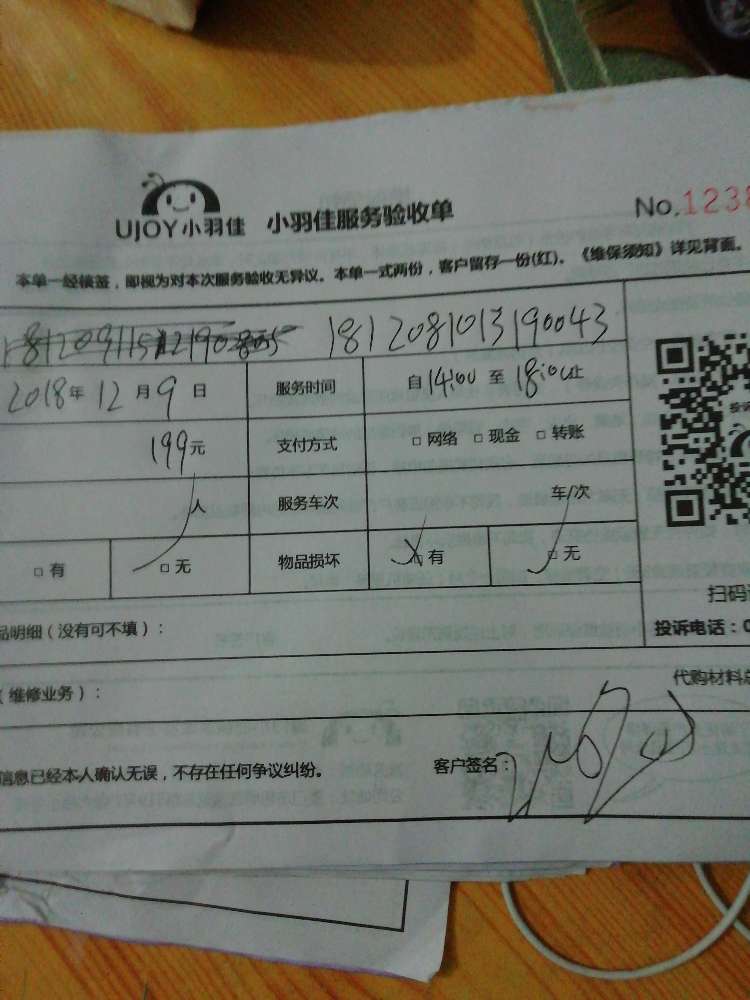 UJOY小羽佳 小羽佳服务验收单 No.1238
本单一经核签，即视为对本次服务验收无异议。本单一式两份，客户留存一份(红)。《维保须知》详见背面。
1812081013190043
2018年12月9日 服务时间 自14:00至18:00止
199元 支付方式 □网络 □现金 □转账
人 服务车次 车/次
□有 □无 物品损坏 □有 □无
扫码
品明细（没有可不填）：
投诉电话：0
（维修业务）：
代购材料总
信息已经本人确认无误，不存在任何争议纠纷。 客户签名：